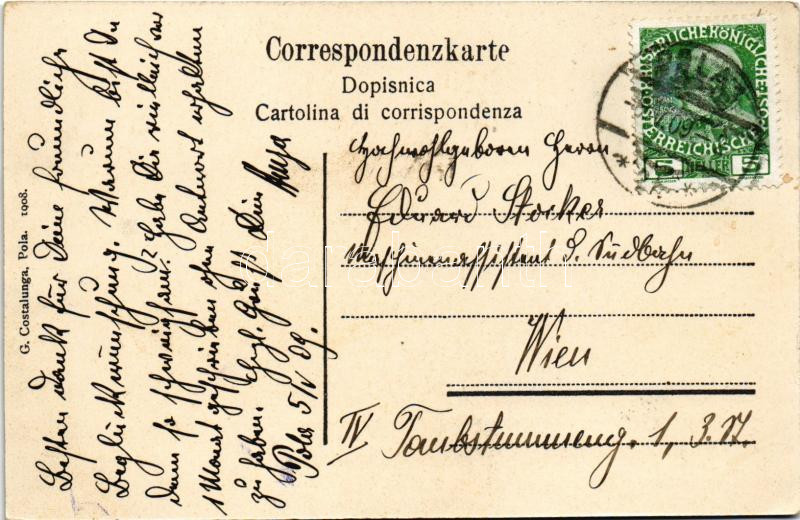 Correspondenzkarte
Dopisnica
Cartolina di corrispondenza
G. Costalunga, Pola. 1908.
Hochwohlgeboren Herrn
Eduard Stocker
Maschinenassistent d. Südbahn
Wien
IV Taubstummeng. 1, 3. St.
Besten Dank für Deine freundliche
Beglückwünschung. Warum bist Du
denn so schweigsam? Habe Dir vielleicht vor
1 Monat geschrieben ohne Antwort erhalten
zu haben. Herzl. Gruß Dein
Pola 5/V 09.
POLA
09
ÖSTERREICHISCHE
5 HELLER 5